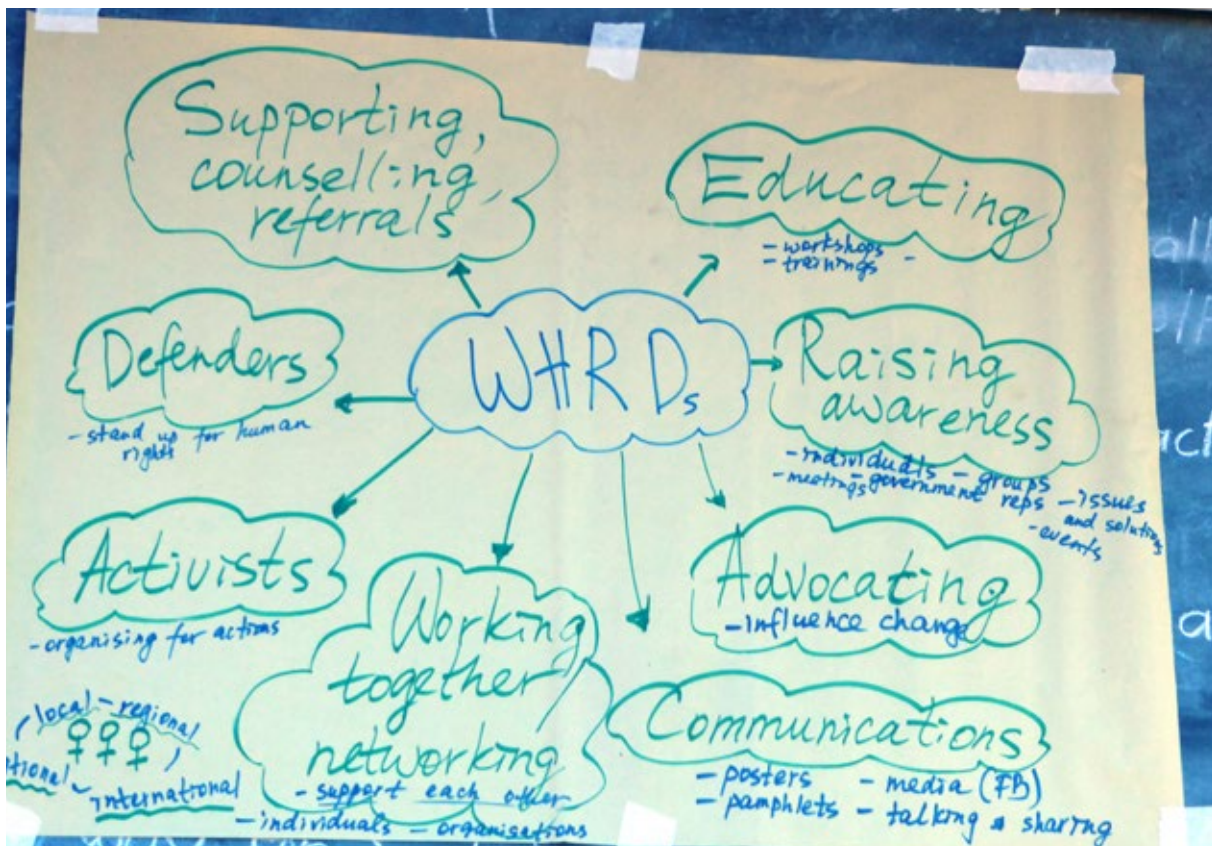 Supporting,
counselling,
referrals
Educating
- workshops
- trainings -
WHRDs
Defenders
- stand up for human
rights
Raising
awareness
- individuals - groups
- meetings - government reps - issues
and solutions
- events
Activists
- organising for actions
Advocating
- influence change
Working
together
networking
- support each other
- individuals - organisations
Communications
- posters - media (FB)
- pamphlets - talking & sharing
local - regional
international